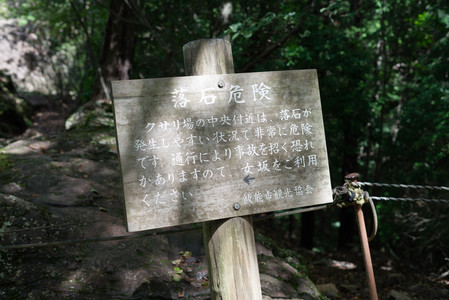 落石危険
クサリ場の中央付近は、落石が
発生しやすい状況で非常に危険
です。通行により事故を招く恐れ
がありますので、女坂をご利用
ください
飯能市観光協会